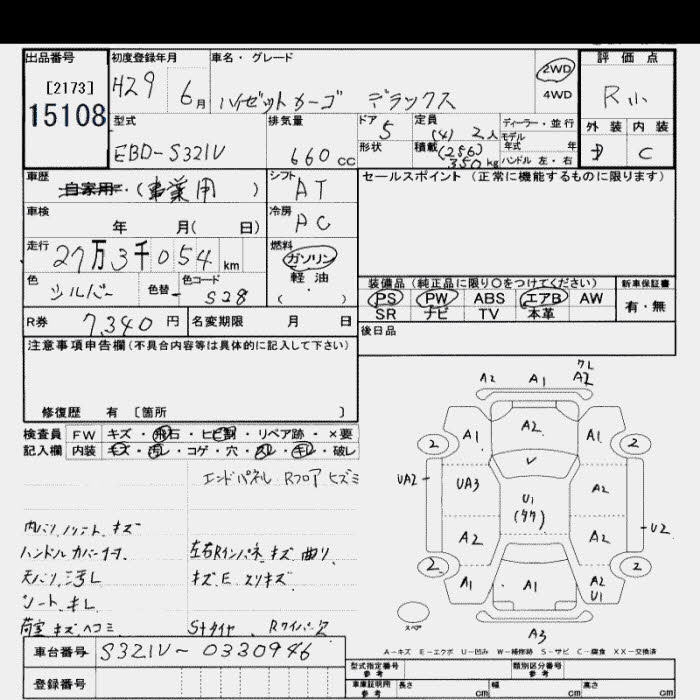 出品番号 初度登録年月 車名・グレード 2WD 評価点
[2173] H29 6月 ハイゼットカーゴ デラックス 4WD R小
15108 型式 排気量 ドア 5 定員 (4) 2人 ディーラー・並行 外装 内装
EBD-S321V 660cc 形状 積載 (256) 350kg モデル年式 年 C
ハンドル 左・右
車歴 自家用・(事業用) シフト AT セールスポイント (正常に機能するものに限ります)
車検 年 月( 日) 冷房 AC
走行 27万3千054km 燃料 ガソリン
色 シルバー 色替 - 色コード S28 軽油・( )
装備品 (純正品に限り○をつけてください) 新車保証書
PS PW ABS エアB AW 有・無
SR ナビ TV 本革
R券 7,340円 名変期限 月 日 後日品
注意事項申告欄(不具合内容等は具体的に記入して下さい)
修復歴 有 [箇所 ]
検査員 FW キズ・飛石・ヒビ割・リペア跡・×要
記入欄 内装 キズ・汚レ・コゲ・穴・スレ・キレ・破レ
エンドパネル Rフロア ヒズミ
内ハリ、ノリット、キズ
ハンドルカバー 左右Rインパネ、キズ 曲リ
天バリ、ミ汚レ キズ、E、スリキズ
シート、キレ
荷室 キズ、ヘコミ Sタイヤ、Rワイパー欠
A2 A1 クレ A2
2 A1 A2 A1 2
UA2 UA3 A2
U1 (タタ)
A2 A2 U2
2 A1 A1 A2 U1 2
スペア A3
A-キズ E-エクボ U-凹み W-補修跡 S-サビ C-腐食 XX-交換済
車台番号 S321V-0330946
登録番号
型式指定番号 参考 類別区分番号 参考
車庫証明用 参考 長さ cm 幅 cm 高さ cm